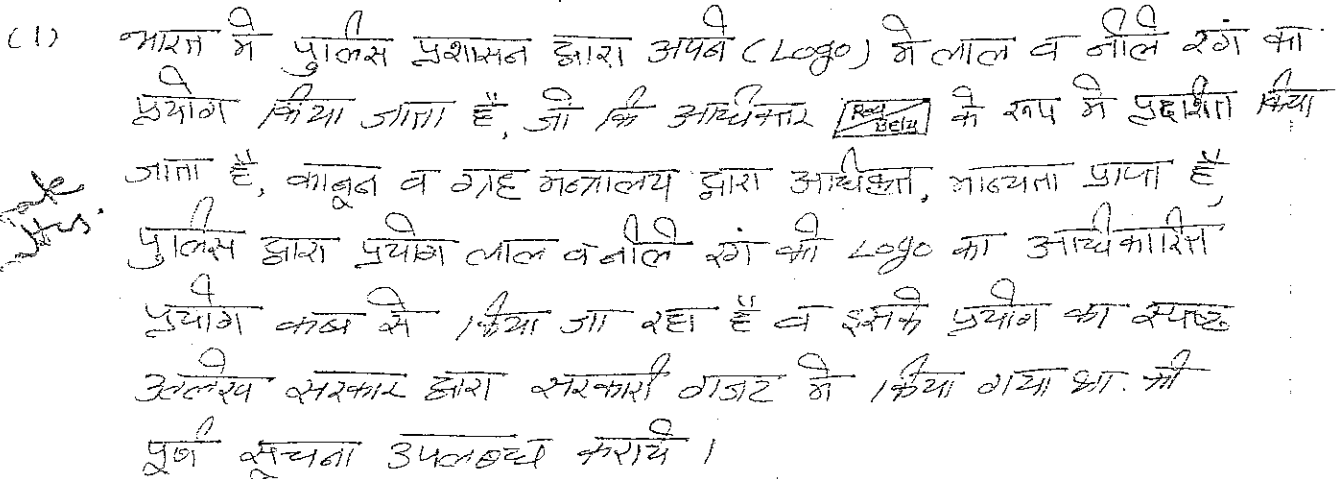 (1) भारत में पुलिस प्रशासन द्वारा अपने (Logo) मे लाल व नीले रंग का
प्रयोग किया जाता है, जो कि अधिकतर Red के रूप मे प्रदर्शित किया
जाता है, कानून व ग्रह मन्त्रालय द्वारा अधिकृत, मान्यता प्राप्त है,
पुलिस द्वारा प्रयोग लाल व नीले रंग की Logo का आधिकारित
प्रयोग कब से किया जा रहा है व इसके प्रयोग का स्पष्ट
उल्लेख सरकार द्वारा सरकारी गजट मे किया गया था. की
पूर्ण सूचना उपलब्ध कराये ।